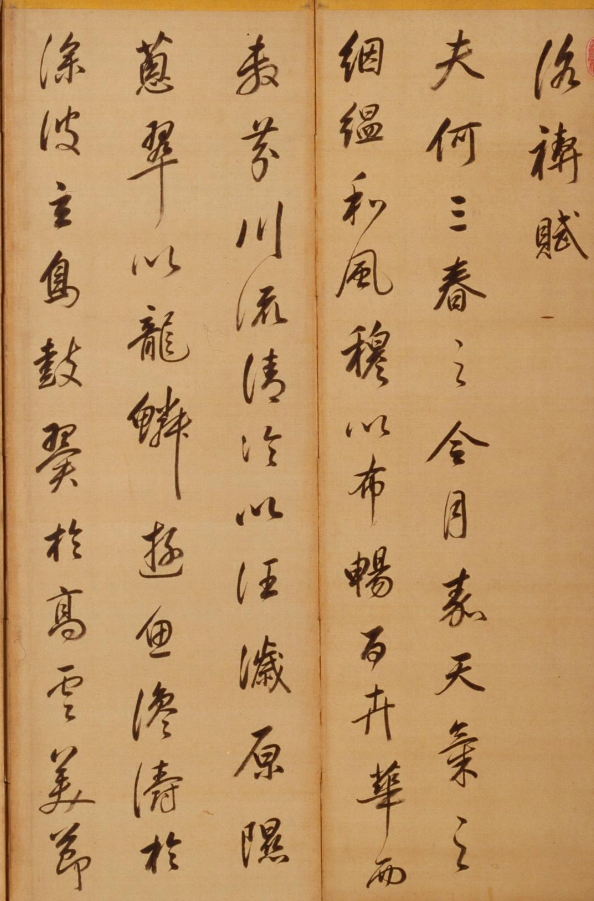 洛禊賦
夫何三春之令月嘉天氣之
絪縕和風穆以布暢百卉華而
敷芬川流清泠以汪濊原隰
蔥翠以龍鱗遊魚瀺灂於
淥波玄鳥鼓翼於高雲美節